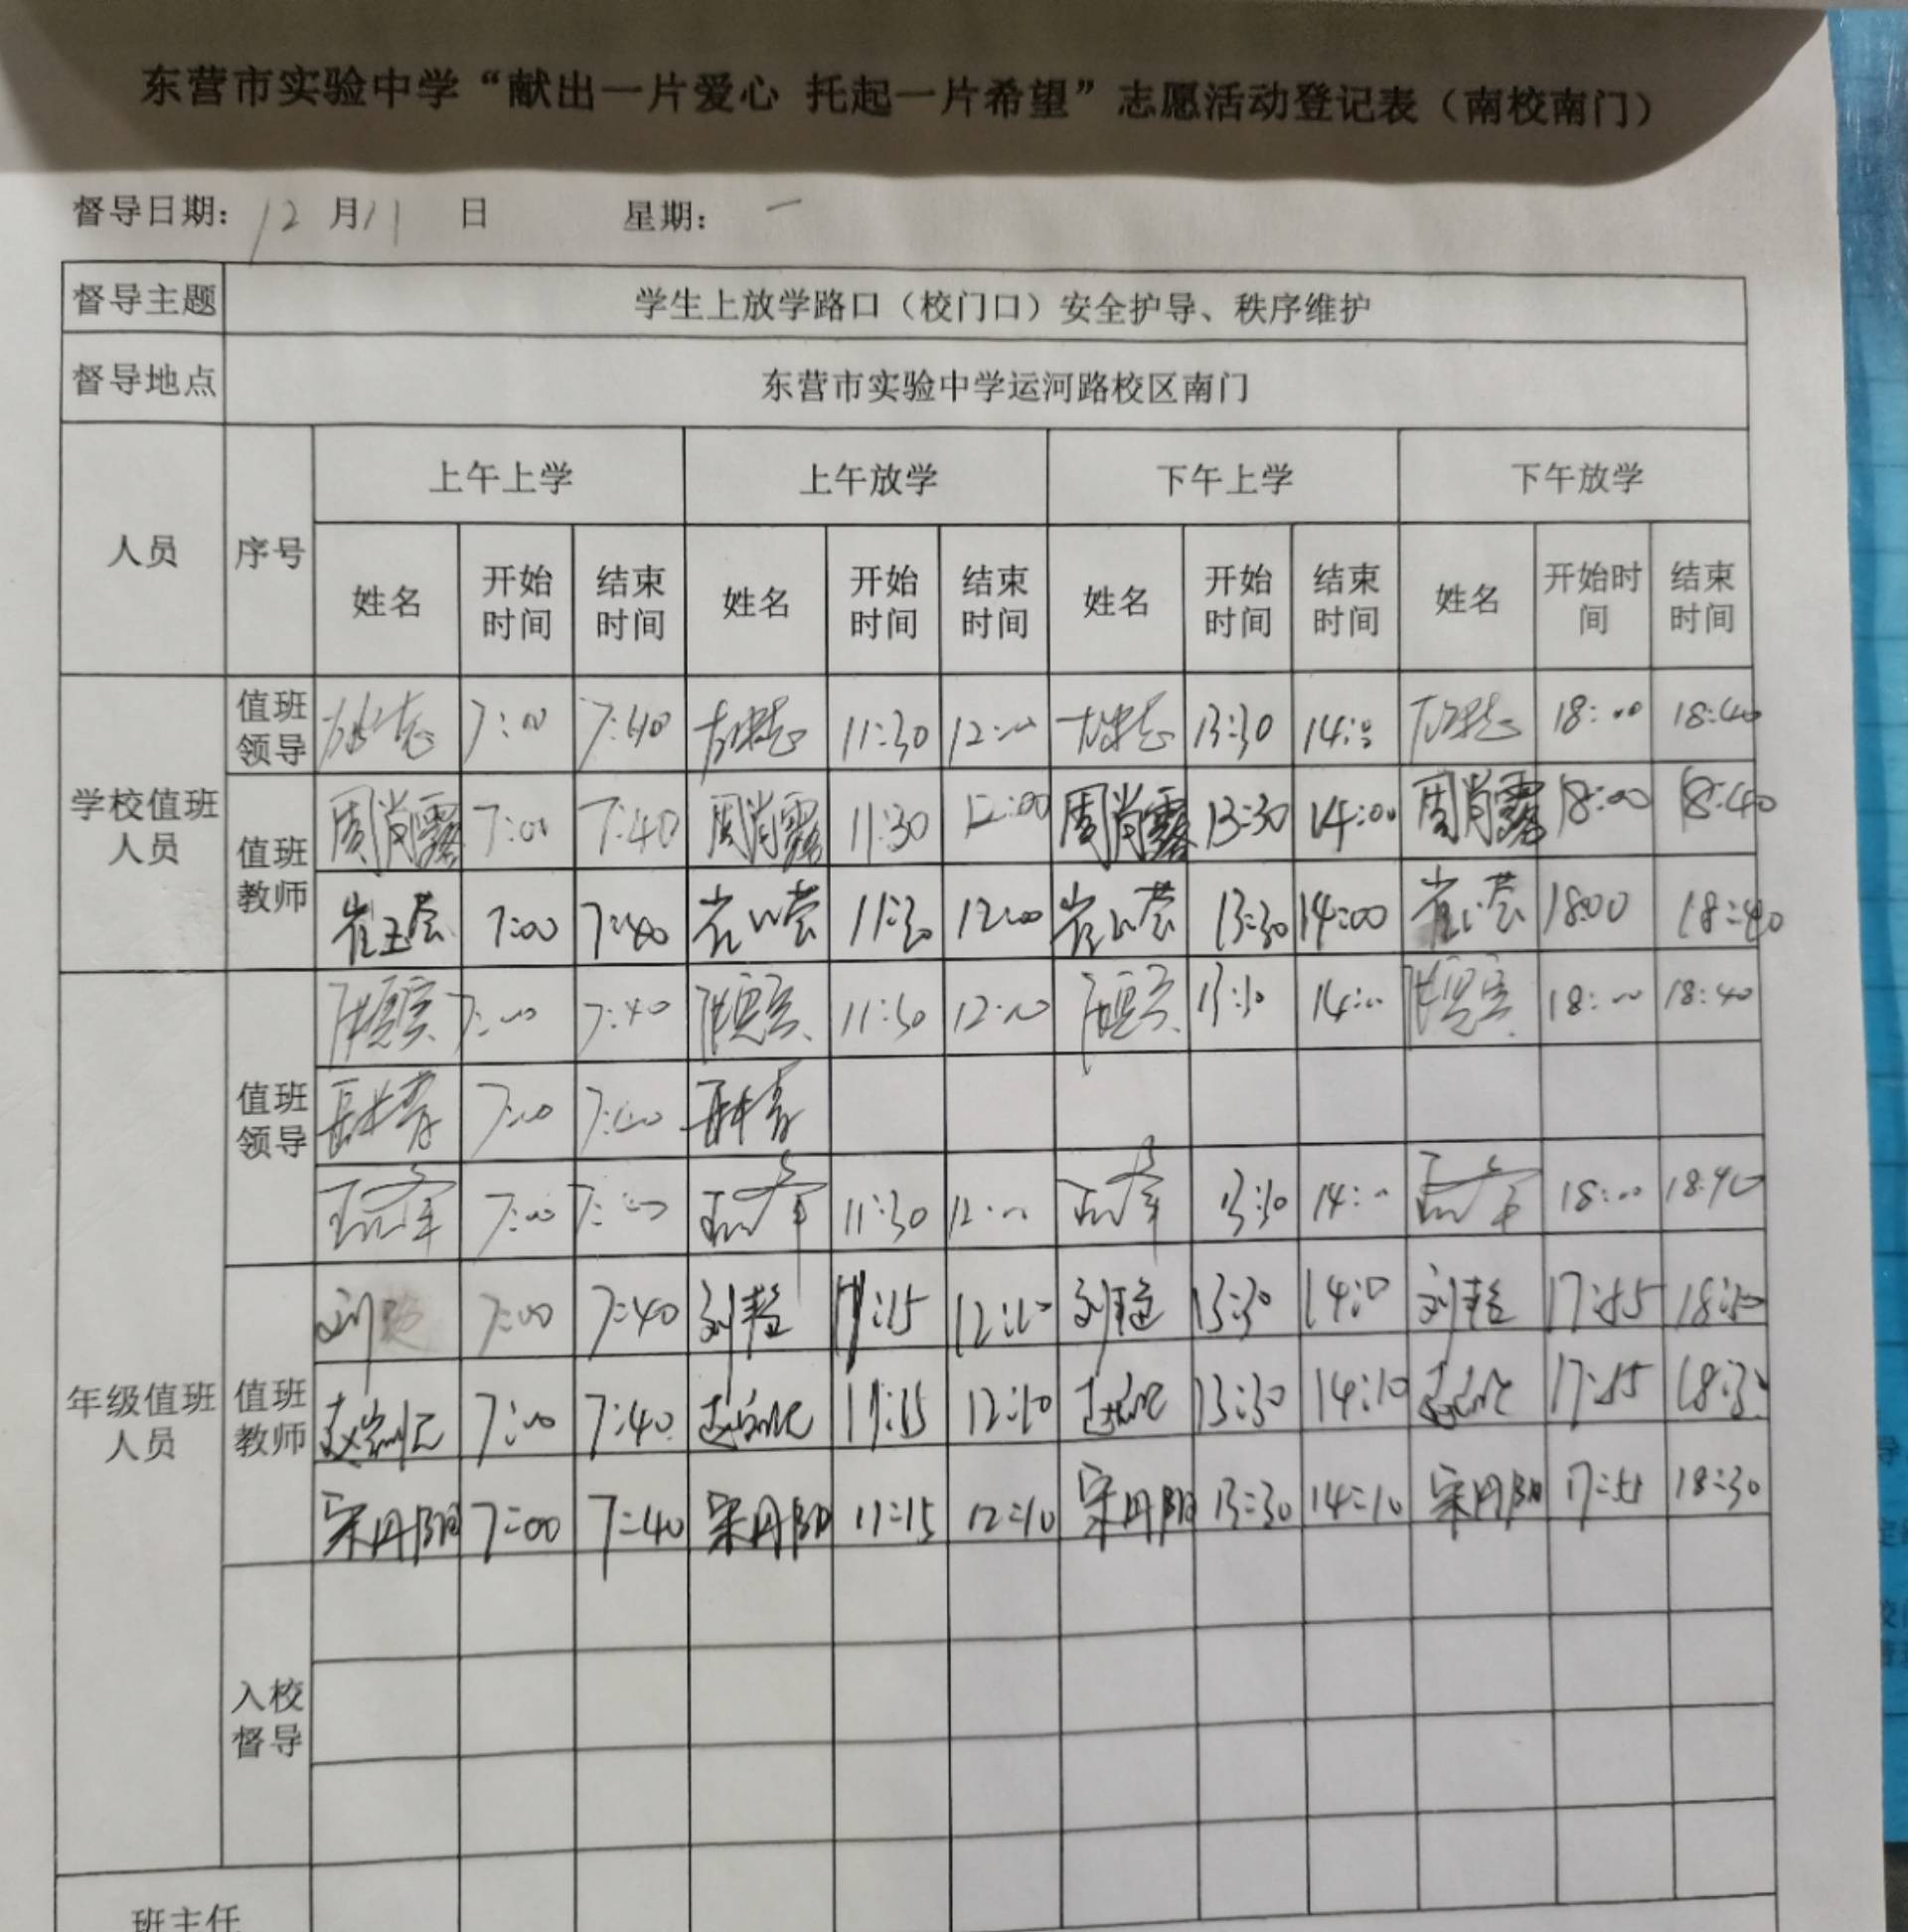 东营市实验中学“献出一片爱心 托起一片希望”志愿活动登记表（南校南门）
督导日期：12月11日 星期：一
督导主题 学生上放学路口（校门口）安全护导、秩序维护
督导地点 东营市实验中学运河路校区南门
人员 序号 上午上学 上午放学 下午上学 下午放学
姓名 开始时间 结束时间 姓名 开始时间 结束时间 姓名 开始时间 结束时间 姓名 开始时间 结束时间
学校值班人员
值班领导 7:00 7:40 11:30 12:00 13:30 14:00 18:00 18:40
值班教师
周肖露 7:00 7:40 周肖露 11:30 12:00 周肖露 13:30 14:00 周肖露 18:00 18:40
崔玉荟 7:00 7:40 崔玉荟 11:30 12:00 崔玉荟 13:30 14:00 崔玉荟 18:00 18:40
年级值班人员
值班领导
7:00 7:40 11:30 12:00 13:30 14:00 18:00 18:40
7:00
7:00 11:30 12:00 13:30 14:00 18:00 18:40
值班教师
刘 7:00 7:40 刘 11:15 12:10 刘 13:30 14:10 刘 17:55
赵 7:00 7:40 赵 11:15 12:10 赵 13:30 14:10 赵 17:55
宋丹阳 7:00 7:40 宋丹阳 11:15 12:10 宋丹阳 13:30 14:10 宋丹阳 17:55 18:30
入校督导
班主任